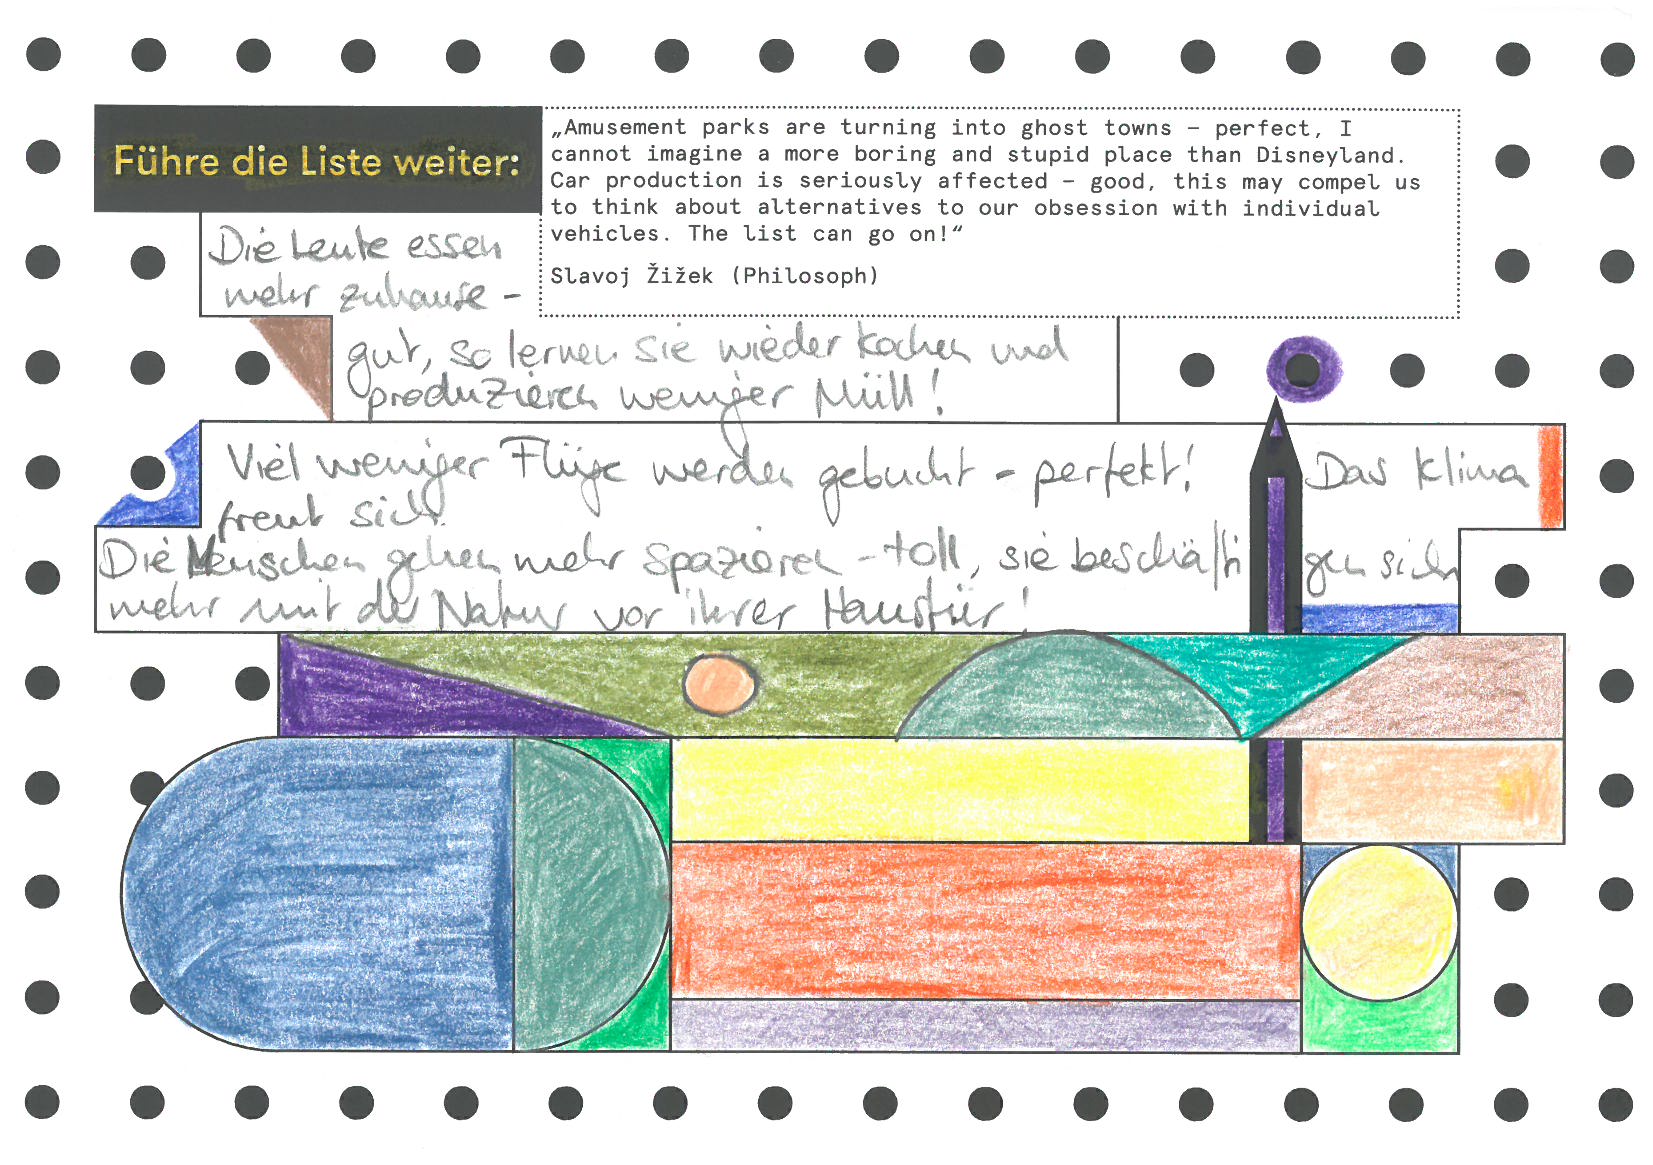 Führe die Liste weiter:
„Amusement parks are turning into ghost towns – perfect, I
cannot imagine a more boring and stupid place than Disneyland.
Car production is seriously affected – good, this may compel us
to think about alternatives to our obsession with individual
vehicles. The list can go on!“
Slavoj Žižek (Philosoph)
Die Leute essen
mehr zuhause –
gut, so lernen sie wieder kochen und
produzieren weniger Müll!
Viel weniger Flüge werden gebucht – perfekt! Das Klima
freut sich.
Die Menschen gehen mehr spazieren – toll, sie beschäftigen sich
mehr mit der Natur vor ihrer Haustür!